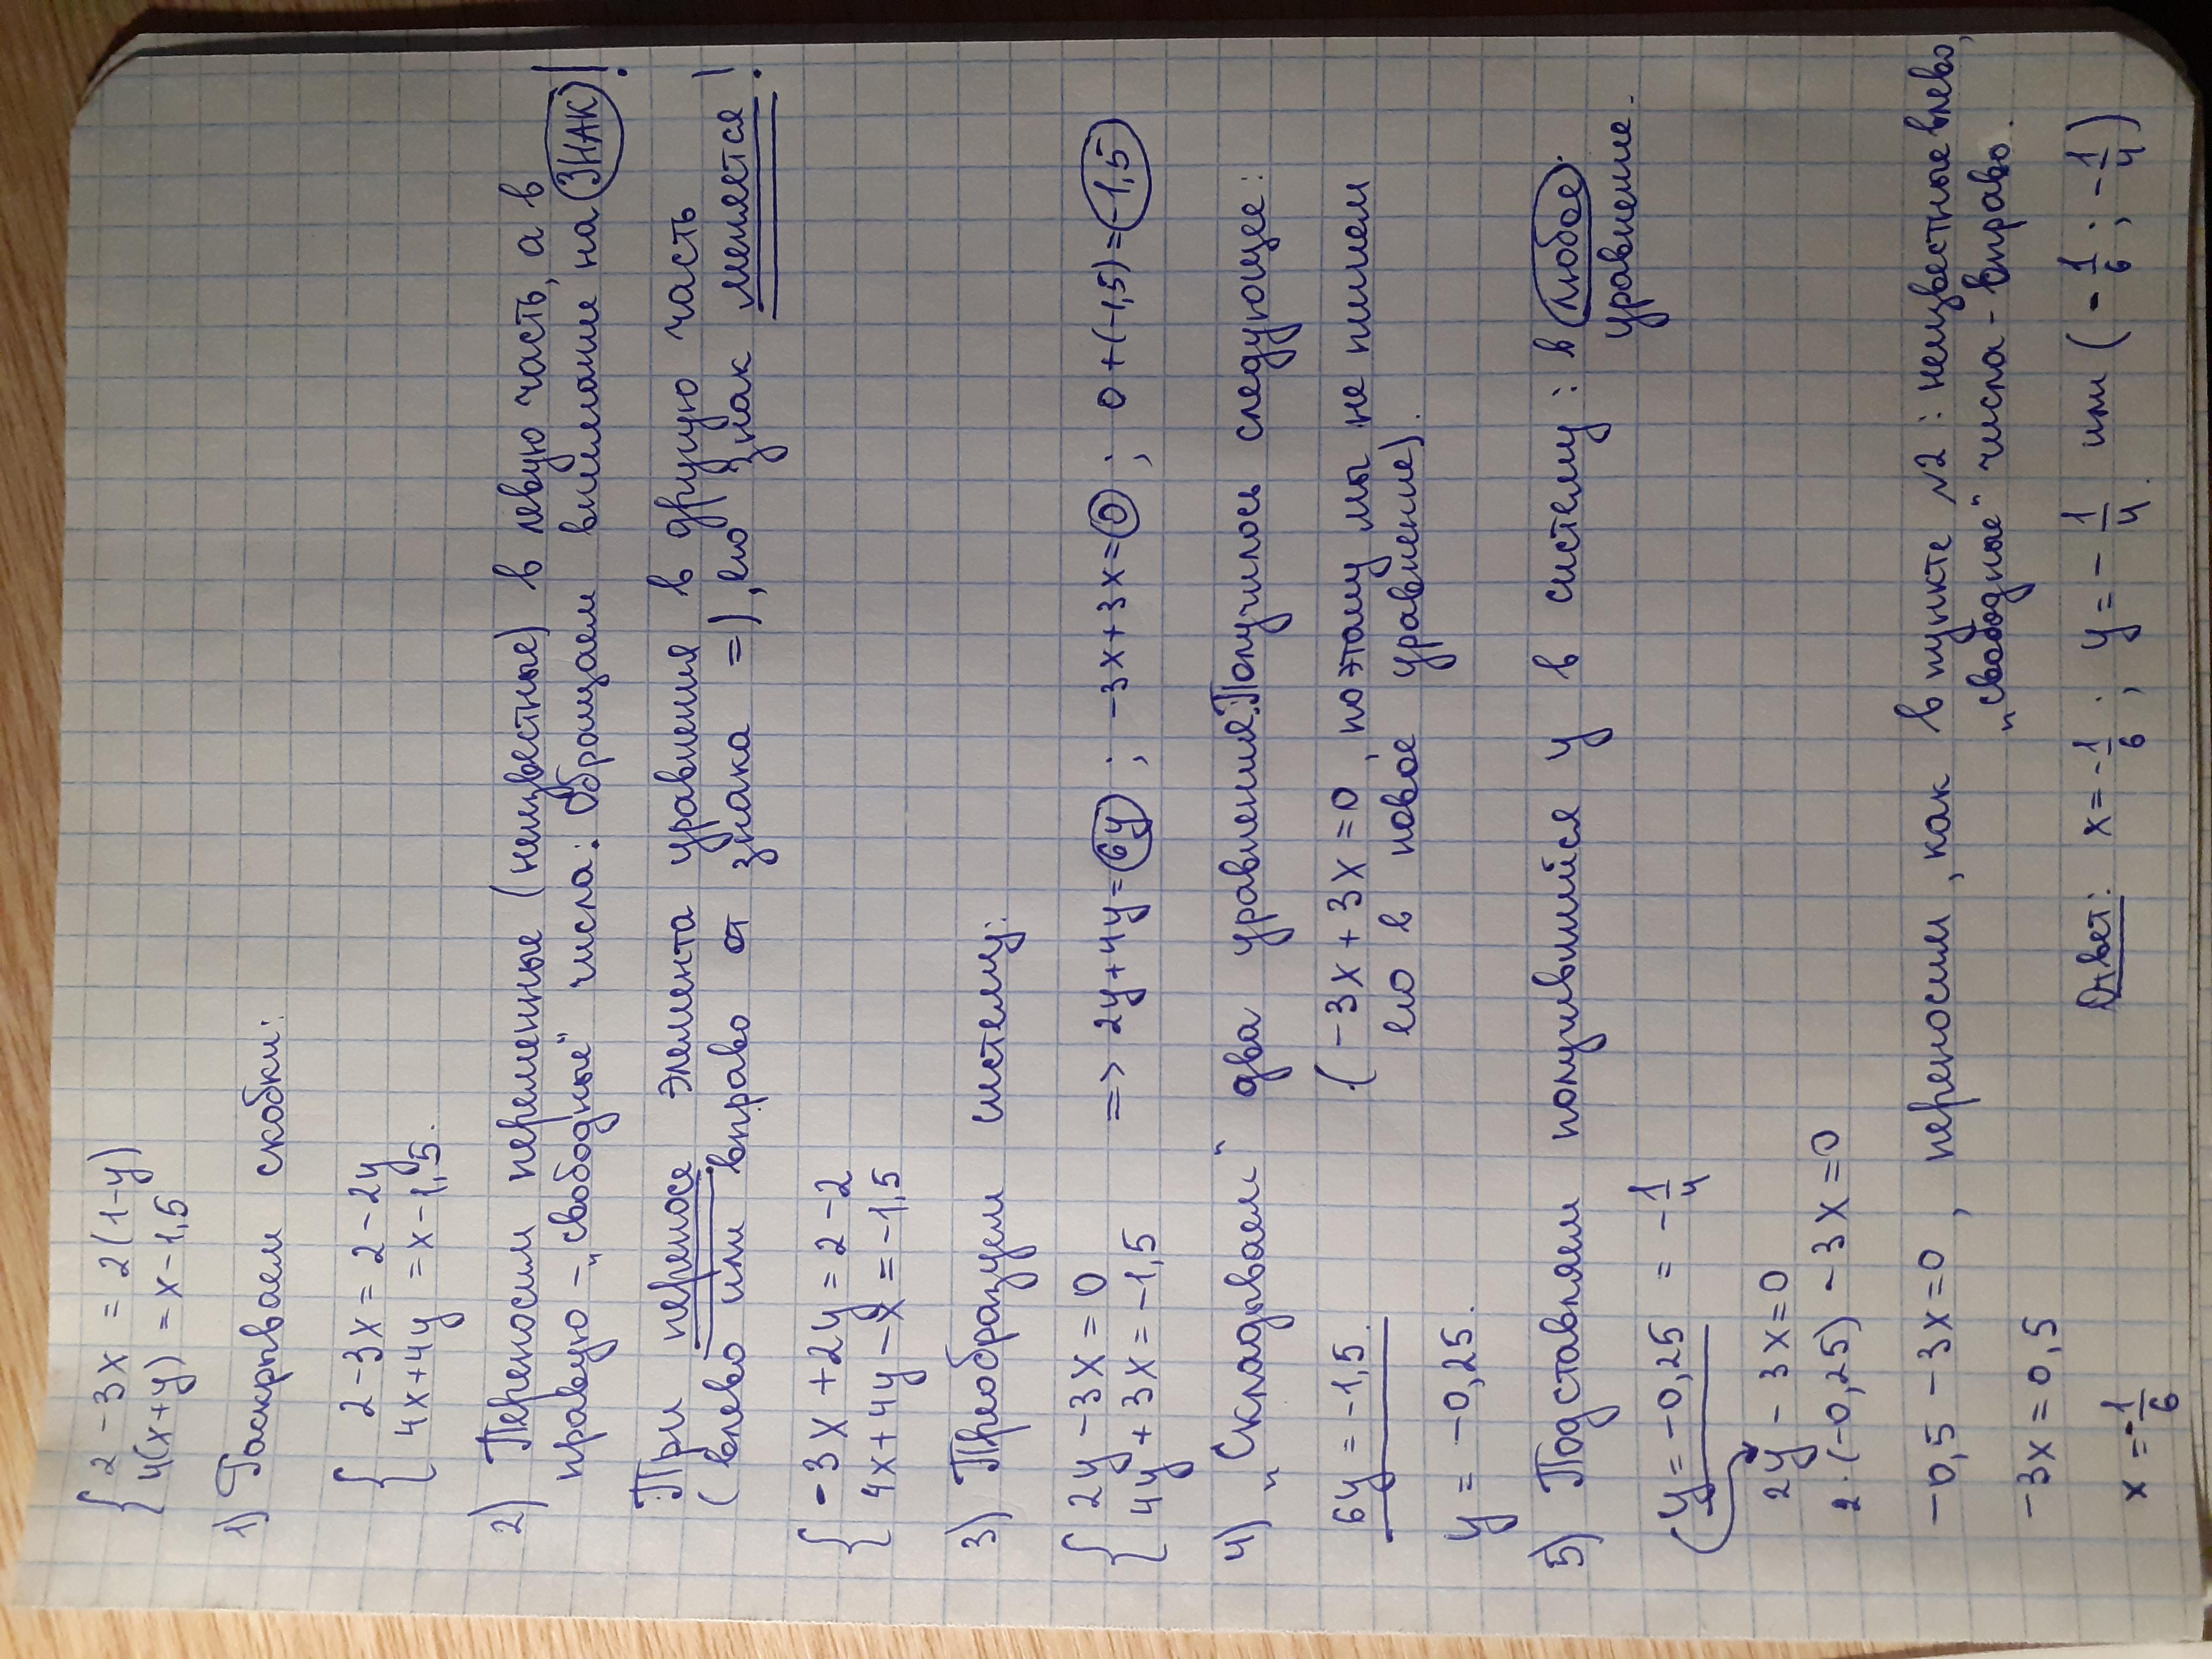 { 2 - 3x = 2(1-y)
4(x+y) = x - 1,5
1) Раскрываем скобки:
{ 2 - 3x = 2 - 2y
4x + 4y = x - 1,5.
2) Переносим переменные (неизвестные) в левую часть, а в
правую - „свободные" числа. Обращаем внимание на ЗНАК!
При переносе элемента уравнения в другую часть
(влево или вправо от знака =), его знак меняется!
{ -3x + 2y = 2 - 2
4x + 4y - x = -1,5
3) Преобразуем систему:
{ 2y - 3x = 0
4y + 3x = -1,5 => 2y + 4y = 6y ; -3x + 3x = 0 ; 0 + (-1,5) = -1,5
4) „Складываем" два уравнения. Получилось следующее:
6y = -1,5 ( -3x + 3x = 0, поэтому мы не пишем
его в новое уравнение).
y = -0,25.
5) Подставляем получившийся y в систему: в любое.
уравнение.
y = -0,25 = -1/4
2y - 3x = 0
2·(-0,25) - 3x = 0
-0,5 - 3x = 0, переносим, как в пункте №2: неизвестные влево,
„свободные" числа - вправо.
-3x = 0,5
x = -1/6
Ответ: x = -1/6 ; y = -1/4 или (-1/6 ; -1/4)